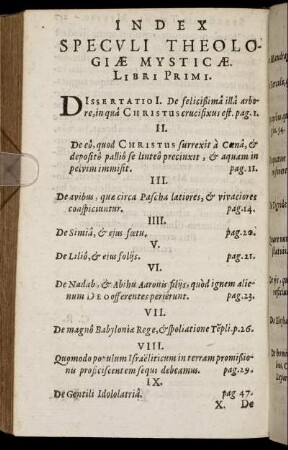 INDEX
SPECVLI THEOLO-
GIÆ MYSTICÆ.
LIBRI PRIMI.
DISSERTATIO I. De felicißimâ illâ arbo-
re, in quâ CHRISTUS crucifixus est. pag. 1.
II.
De eô, quod CHRISTUS surrexit à Cœnâ, &
depositô palliô se linteô præcinxit, & aquam in
pelvim immisit. pag. 11.
III.
De avibus, quæ circa Pascha latiores, & vivaciores
conspiciuntur. pag. 14.
IIII.
De Simiâ, & ejus fœtu. pag. 20.
V.
De Liliô, & ejus folijs. pag. 21.
VI.
De Nadab, & Abihu Aaronis filijs, quòd ignem alie-
num DEO offerentes perierunt. pag. 23.
VII.
De magnô Babyloniæ Rege, & spoliatione Tēpli. p. 26.
VIII.
Quomodo populum Israëliticum in terram promißio-
nis proficiscentem sequi debeamus. pag. 29.
IX.
De Gentili Idololatriâ. pag 47.
X. De